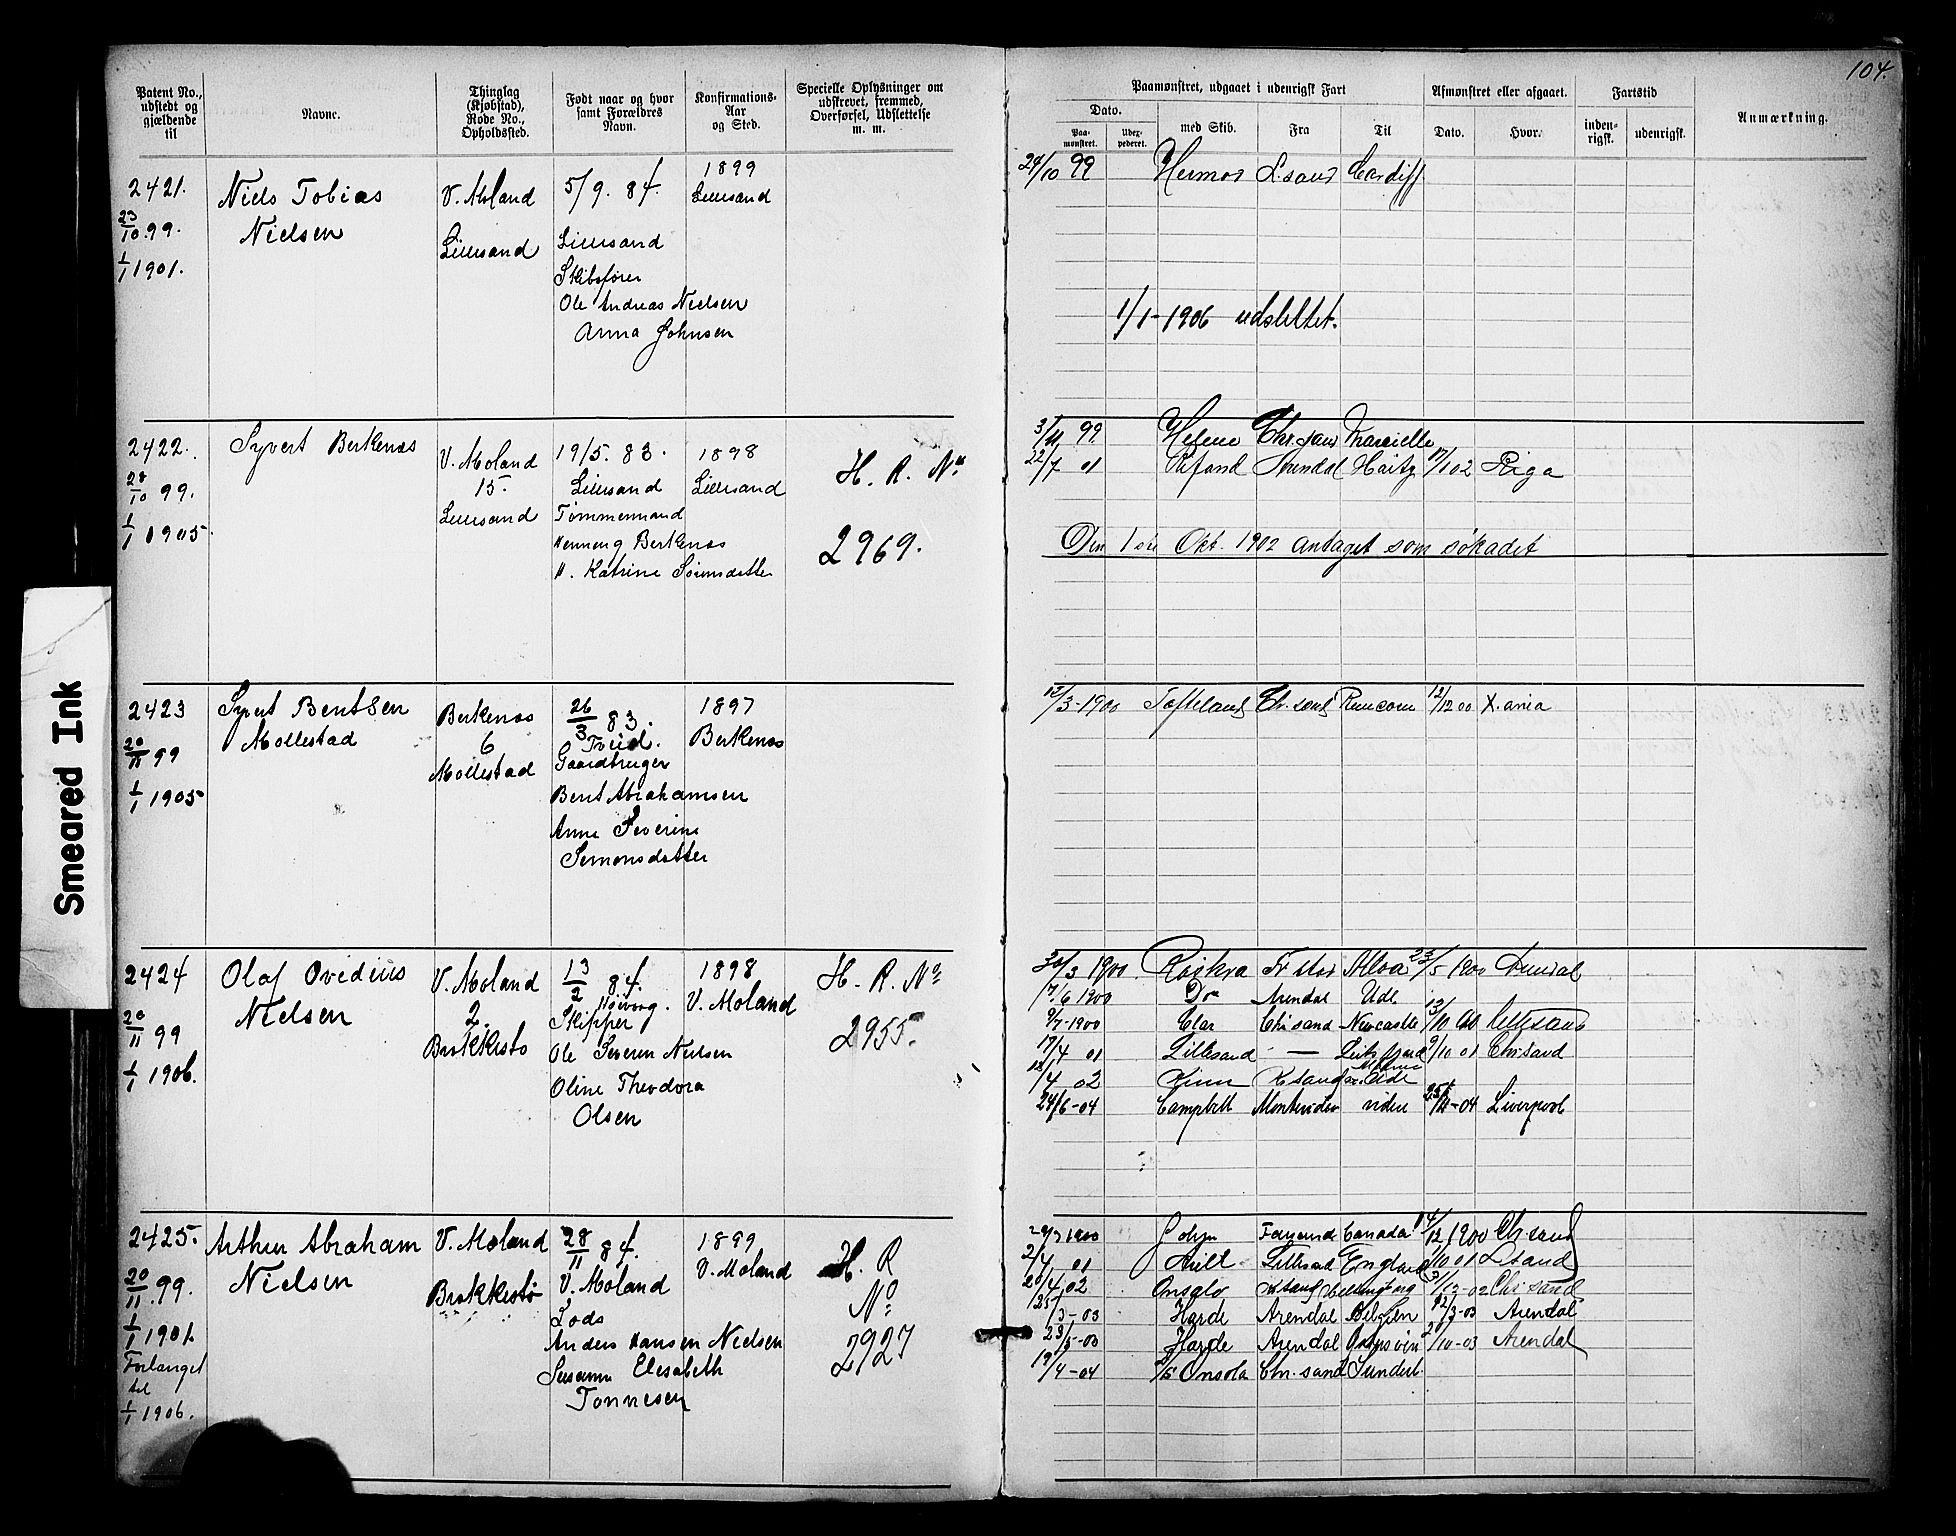 104.
Patent No., udstedt og gjældende til
Navne.
Thinglag (Kjøbstad), Rode No., Opholdssted.
Født naar og hvor samt Forældres Navn.
Konfirmations-Aar og Sted.
Specielle Oplysninger om udskrevet, fremmed, Overførsel, Udslettelse m. m.
Paamønstret, udgaaet i udenrigsk Fart
Dato.
Paa-mønstret.
Udex-pederet.
med Skib.
Fra
Til
Afmønstret eller afgaaet.
Dato.
Hvor.
Fartstid
inden-rigsk.
udenrigsk.
Anmærkning.
Smeared Ink
2421.
23/10 99.
1/1 1901.
Niels Tobias
Nielsen
V. Moland
Lillesand
5/9. 84.
Lillesand
Skibsfører
Ole Andreas Nielsen
Anna Johnsen
1899
Lillesand
24/10 99 Hermod L.sand Cardiff
1/1-1906 udslettet.
2422.
28/10 99.
1/1 1905
Syvert Berkenæs
V. Moland
15.
Lillesand
19/5. 83.
Lillesand
Tømmermand
Henning Berkenæs
H. Katrine Sørensdatter
1898
Lillesand
H. R. No
2969.
3/11 99 Helene Chr.sand
22/7 01 Arendal 02 Riga
Den 1ste Okt. 1902 antaget som søkadet
2423
20/11 99
1/1 1905
Syvert Bentsen
Mollestad
Berkenæs
6
Mollestad
26/3 83.
Tveid.
Gaardbruger
Bent Abrahamsen
Anne Severine
Semonsdatter
1897
Berkenæs
12/3-1900 Tofteland Ch.sand Runcorn 12/12 00 X.ania
2424
20/11 99
1/1 1906.
Olaf Ovedius
Nielsen
V. Moland
2.
Brækkestø
13/2 84.
Høivaag.
Skipper
Ole Severin Nielsen
Oline Theodora
Olsen
1898
V. Moland
H. R. No
2955.
30/3 1900 Fr stad Alloa 23/5 1900 Arendal
7/6 1900 Do Arendal Udl
9/7-1900 Clar Chr sand Newcastle 13/10 00 Lillesand
17/4 01 Lillesand — 9/10 01 Chr.sand
18/4 02 K sand
24/6-04 Campbell Montevideo videre 25/11-04 Liverpool
2425.
20/11.99.
1/1 1901.
Forlænget
til
1/1 1906.
Arthur Abraham
Nielsen
V. Moland
Brækkestø
28/11 84.
V. Moland
Lods
Anders Hansen Nielsen
Susanne Elesabeth
Tønnesen
1899
V. Moland
H. R
No
2927
1900 Canada 14/12 1900 Ch sand
2/4 01 Lillesand England 01 L sand
20/4 02 Onsolo K sand 02 Chr sand
25/3-03 Harde Arendal Belgien 12/3-03 Arendal
23/5-03 Harde Arendal /10-03 Arendal
19/4-04 Onsola Chr. sand Sunderl